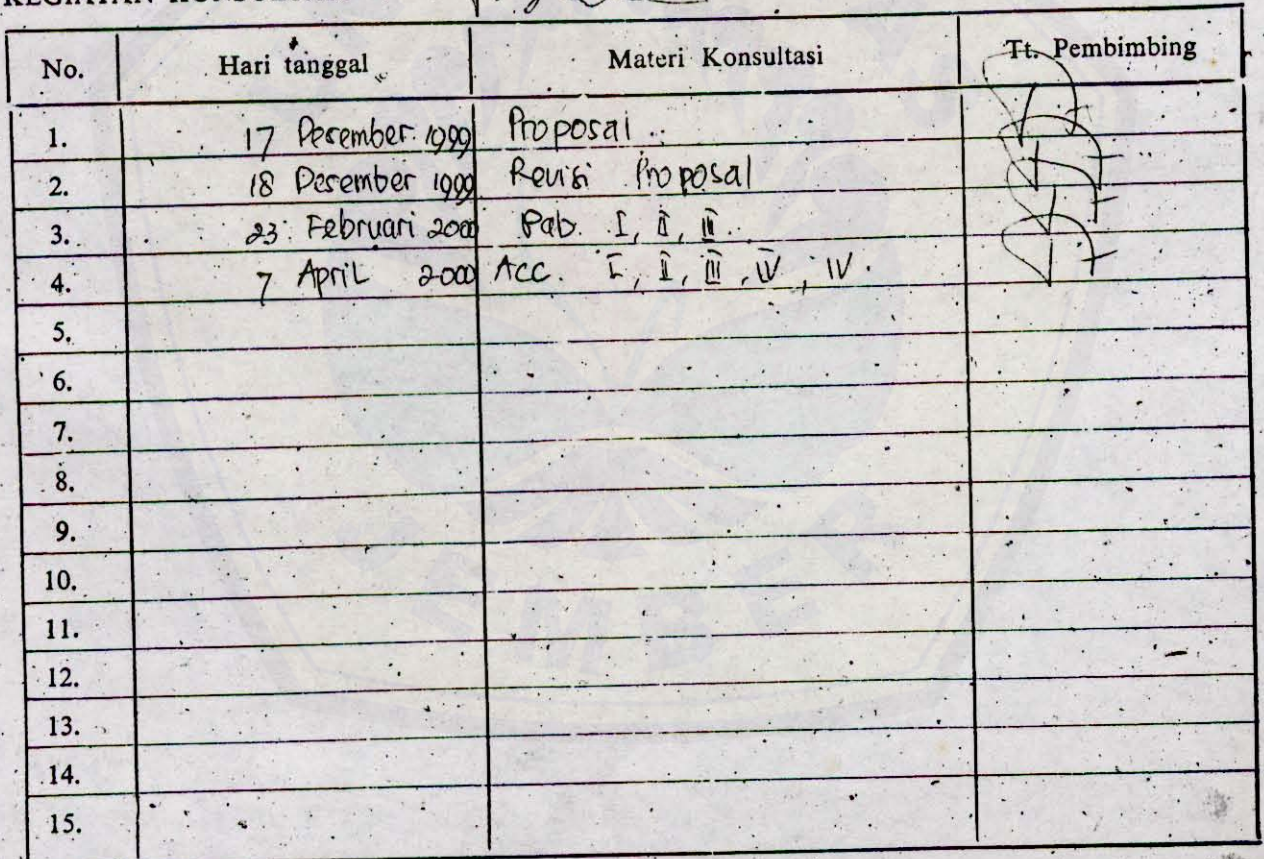 No. Hari tanggal Materi Konsultasi Tt. Pembimbing
1. 17 Desember 1999 Proposal
2. 18 Desember 1999 Revisi Proposal
3. 23 Februari 2000 Bab. I, II, III
4. 7 April 2000 ACC. I, II, III, IV, IV.
5.
6.
7.
8.
9.
10.
11.
12.
13.
14.
15.